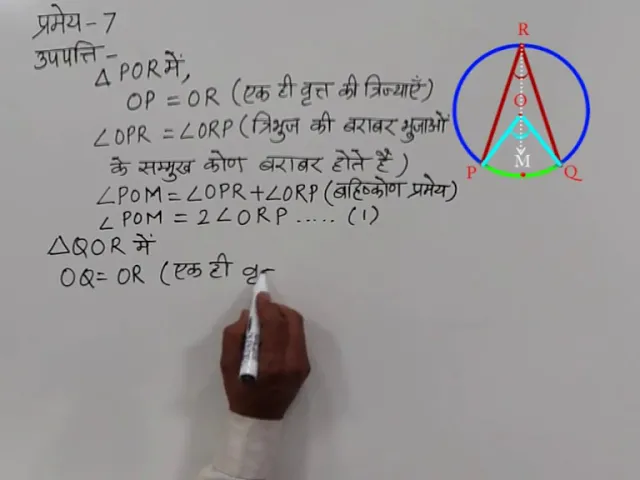 प्रमेय-7
उपपत्ति-
△POR में,
OP = OR (एक ही वृत्त की त्रिज्याएँ)
∠OPR = ∠ORP (त्रिभुज की बराबर भुजाओं
के सम्मुख कोण बराबर होते हैं)
∠POM = ∠OPR + ∠ORP (बहिष्कोण प्रमेय)
∠POM = 2∠ORP ..... (1)
△QOR में
OQ = OR (एक ही वृ
R
O
M
P
Q